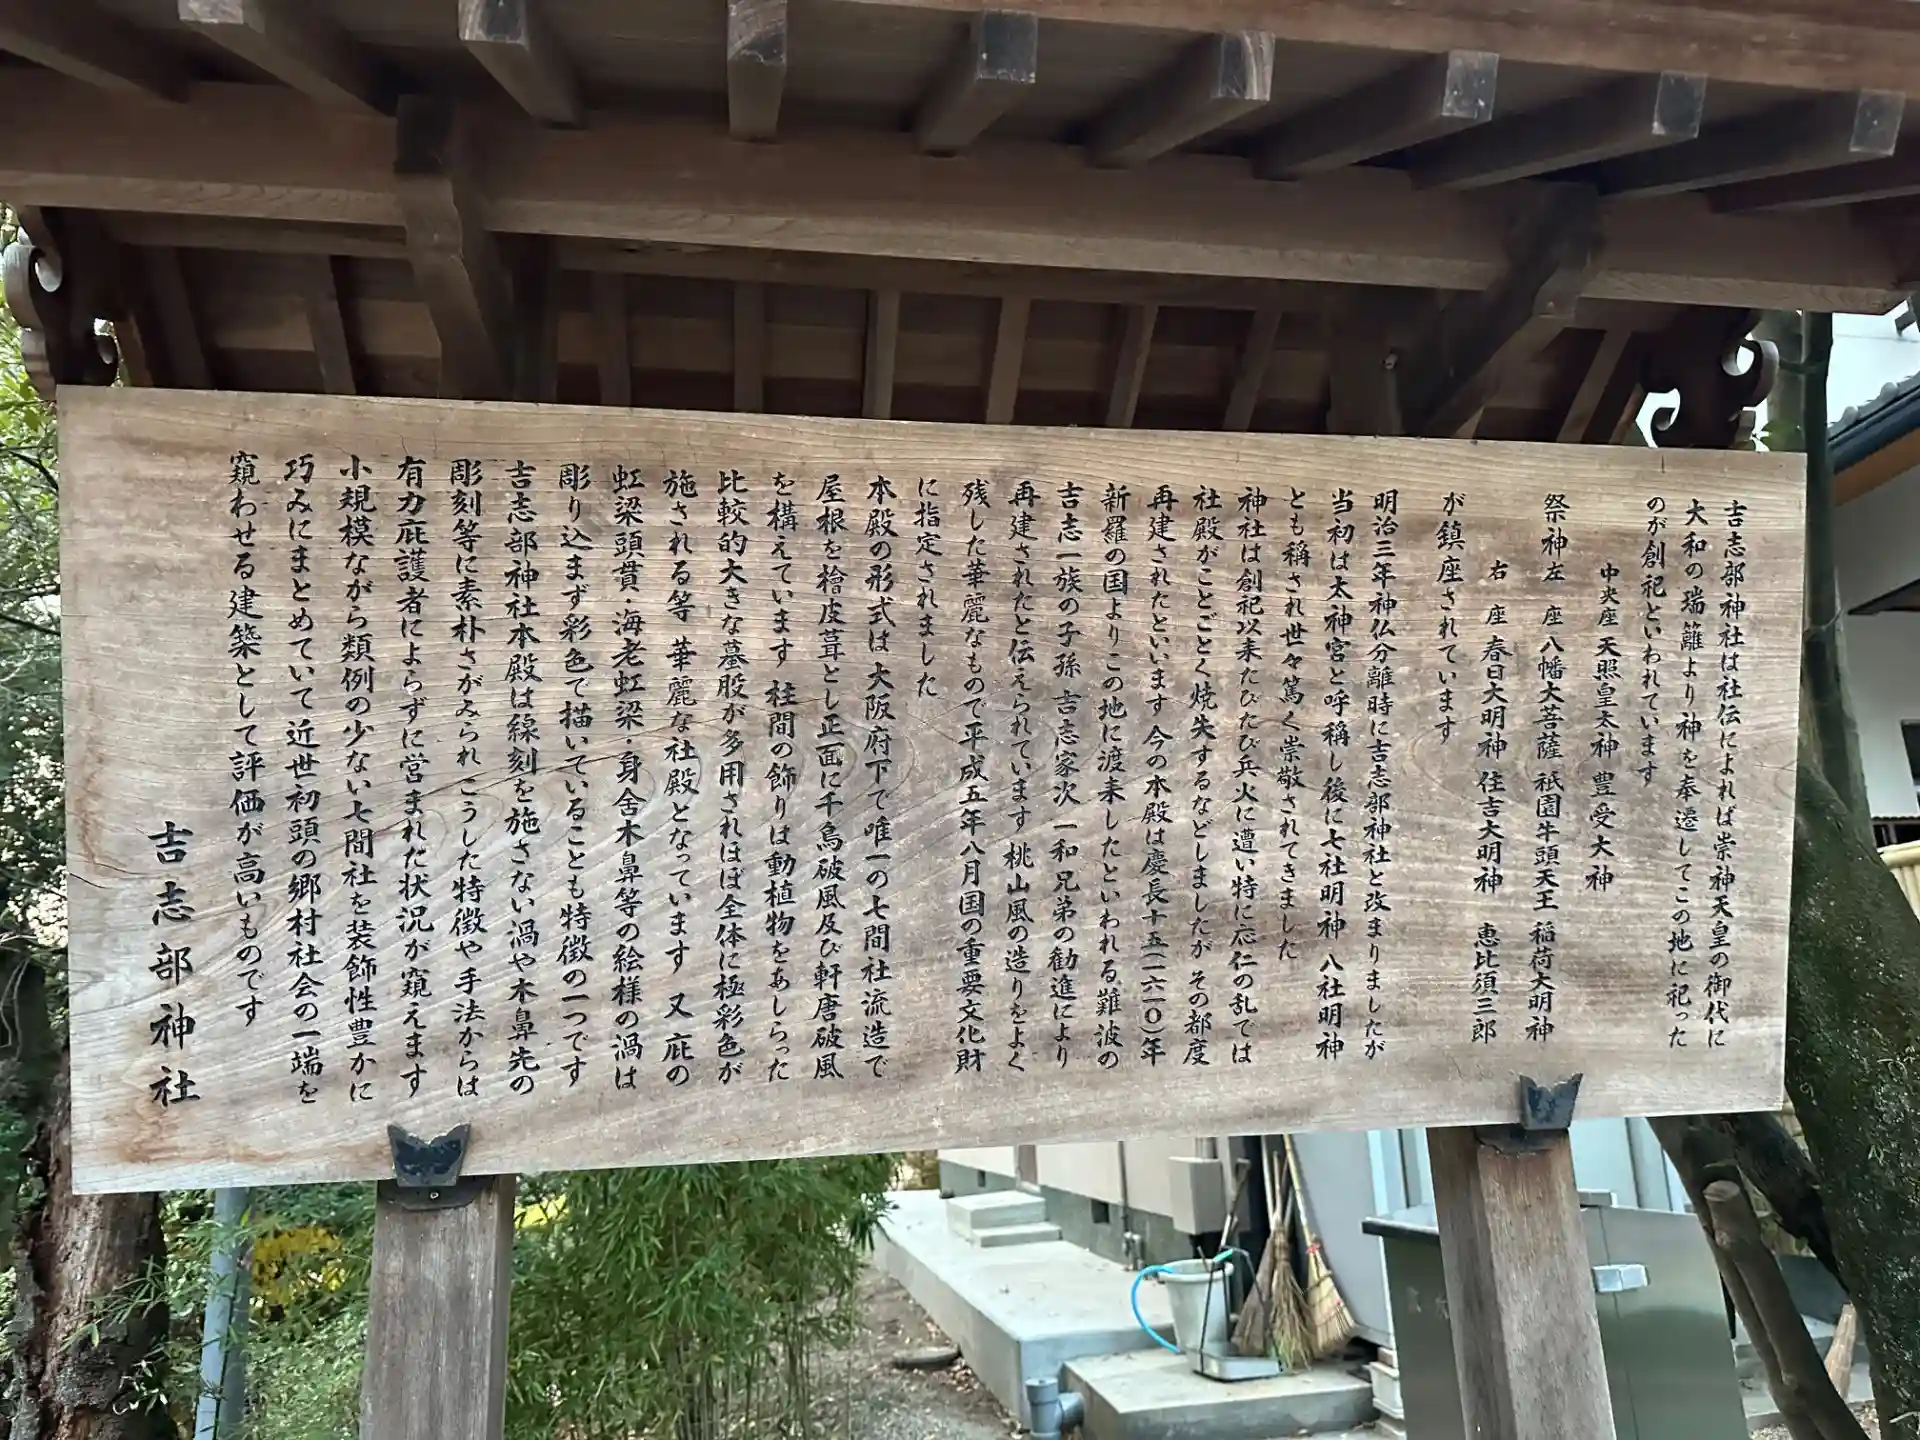 吉志部神社は社伝によれば崇神天皇の御代に
大和の瑞籬より神を奉遷してこの地に祀った
のが創祀といわれています
中央座 天照皇太神 豊受大神
祭神左 座 八幡大菩薩 祇園牛頭天王 稲荷大明神
右 座 春日大明神 住吉大明神 恵比須三郎
が鎮座されています
明治三年神仏分離時に吉志部神社と改まりましたが
当初は太神宮と呼称し後に七社明神 八社明神
とも称され世々篤く崇敬されてきました
神社は創祀以来たびたび兵火に遭い特に応仁の乱では
社殿がことごとく焼失するなどしましたが その都度
再建されたといいます 今の本殿は慶長十五(一六一〇)年
新羅の国よりこの地に渡来したといわれる難波の
吉志一族の子孫 吉志家次 一和兄弟の勧進により
再建されたと伝えられています 桃山風の造りをよく
残した華麗なもので平成五年八月国の重要文化財
に指定されました
本殿の形式は 大阪府下で唯一の七間社流造で
屋根を檜皮葺とし正面に千鳥破風及び軒唐破風
を構えています 柱間の飾りは動植物をあしらった
比較的大きな墓股が多用されほぼ全体に極彩色が
施される等 華麗な社殿となっています 又 庇の
虹梁頭貫・海老虹梁・身舎木鼻等の絵様の渦は
彫り込まず彩色で描いていることも特徴の一つです
吉志部神社本殿は線刻を施さない渦や木鼻先の
彫刻等に素朴さがみられ こうした特徴や手法からは
有力庇護者によらずに営まれた状況が窺えます
小規模ながら類例の少ない七間社を装飾性豊かに
巧みにまとめていて近世初頭の郷村社会の一端を
窺わせる建築として評価が高いものです
吉志部神社